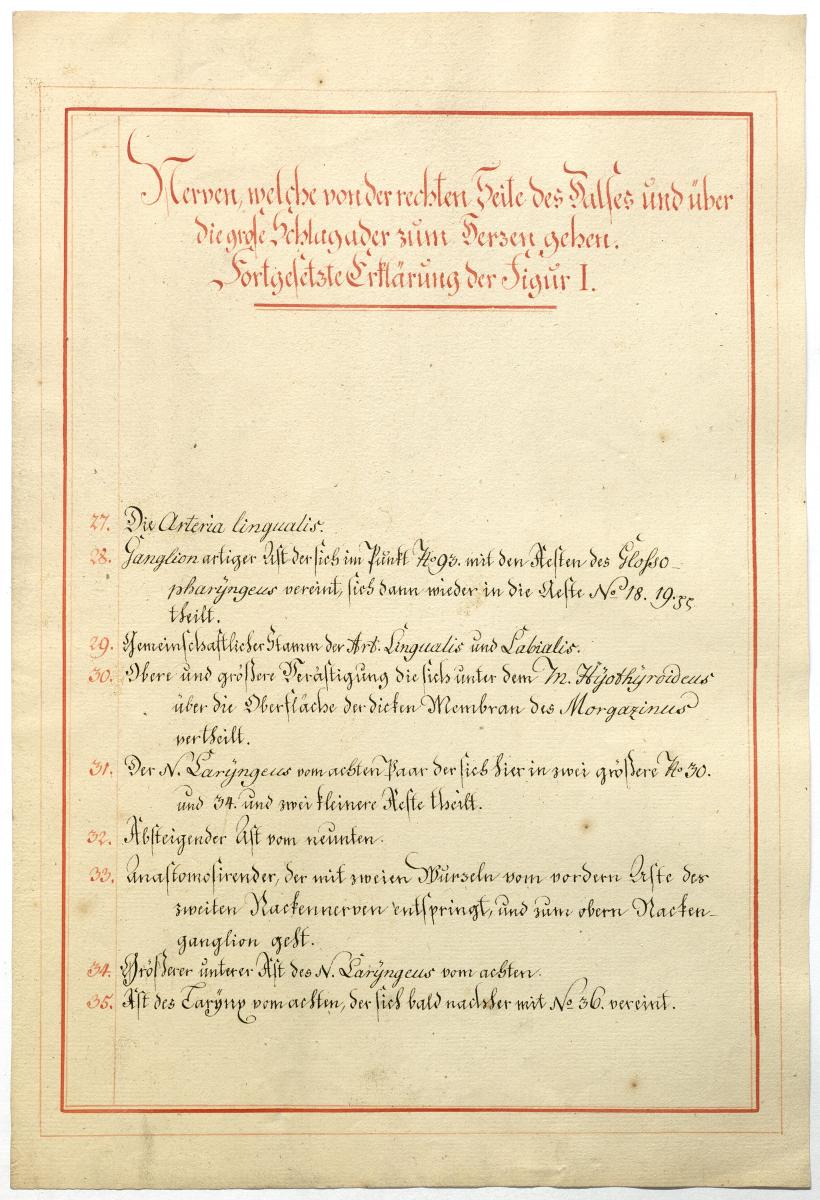 Nerven, welche von der rechten Seite des Halses und über
die große Schlagader zum Herzen gehen.
Fortgesetzte Erklärung der Figur I.
27. Die Arteria lingualis.
28. Ganglion artiger Ast der sich im Punkt No 93. mit den Aesten des Glosso-
pharÿngeus vereint, sich dann wieder in die Aeste No 18. 19.
theilt.
29. Gemeinschaftlicher Stamm der Art. Lingualis und Labialis.
30. Obere und größere Verästigung die sich unter dem M. Hÿothÿroideus
über die Oberfläche der dicken Membran des Morgazinus
vertheilt.
31. Der N. Larÿngeus vom achten Paar der sich hier in zwei größere No 30.
und 34. und zwei kleinere Aeste theilt.
32. Absteigender Ast vom neunten.
33. Anastomosirender, der mit zweien Wurzeln vom vordern Aste des
zweiten Nackennerven entspringt, und zum obern Nacken-
ganglion geht.
34. Größerer unterer Ast des N. Larÿngeus vom achten.
35. Ast des vom achten, der sich bald nachher mit No 36. vereint.